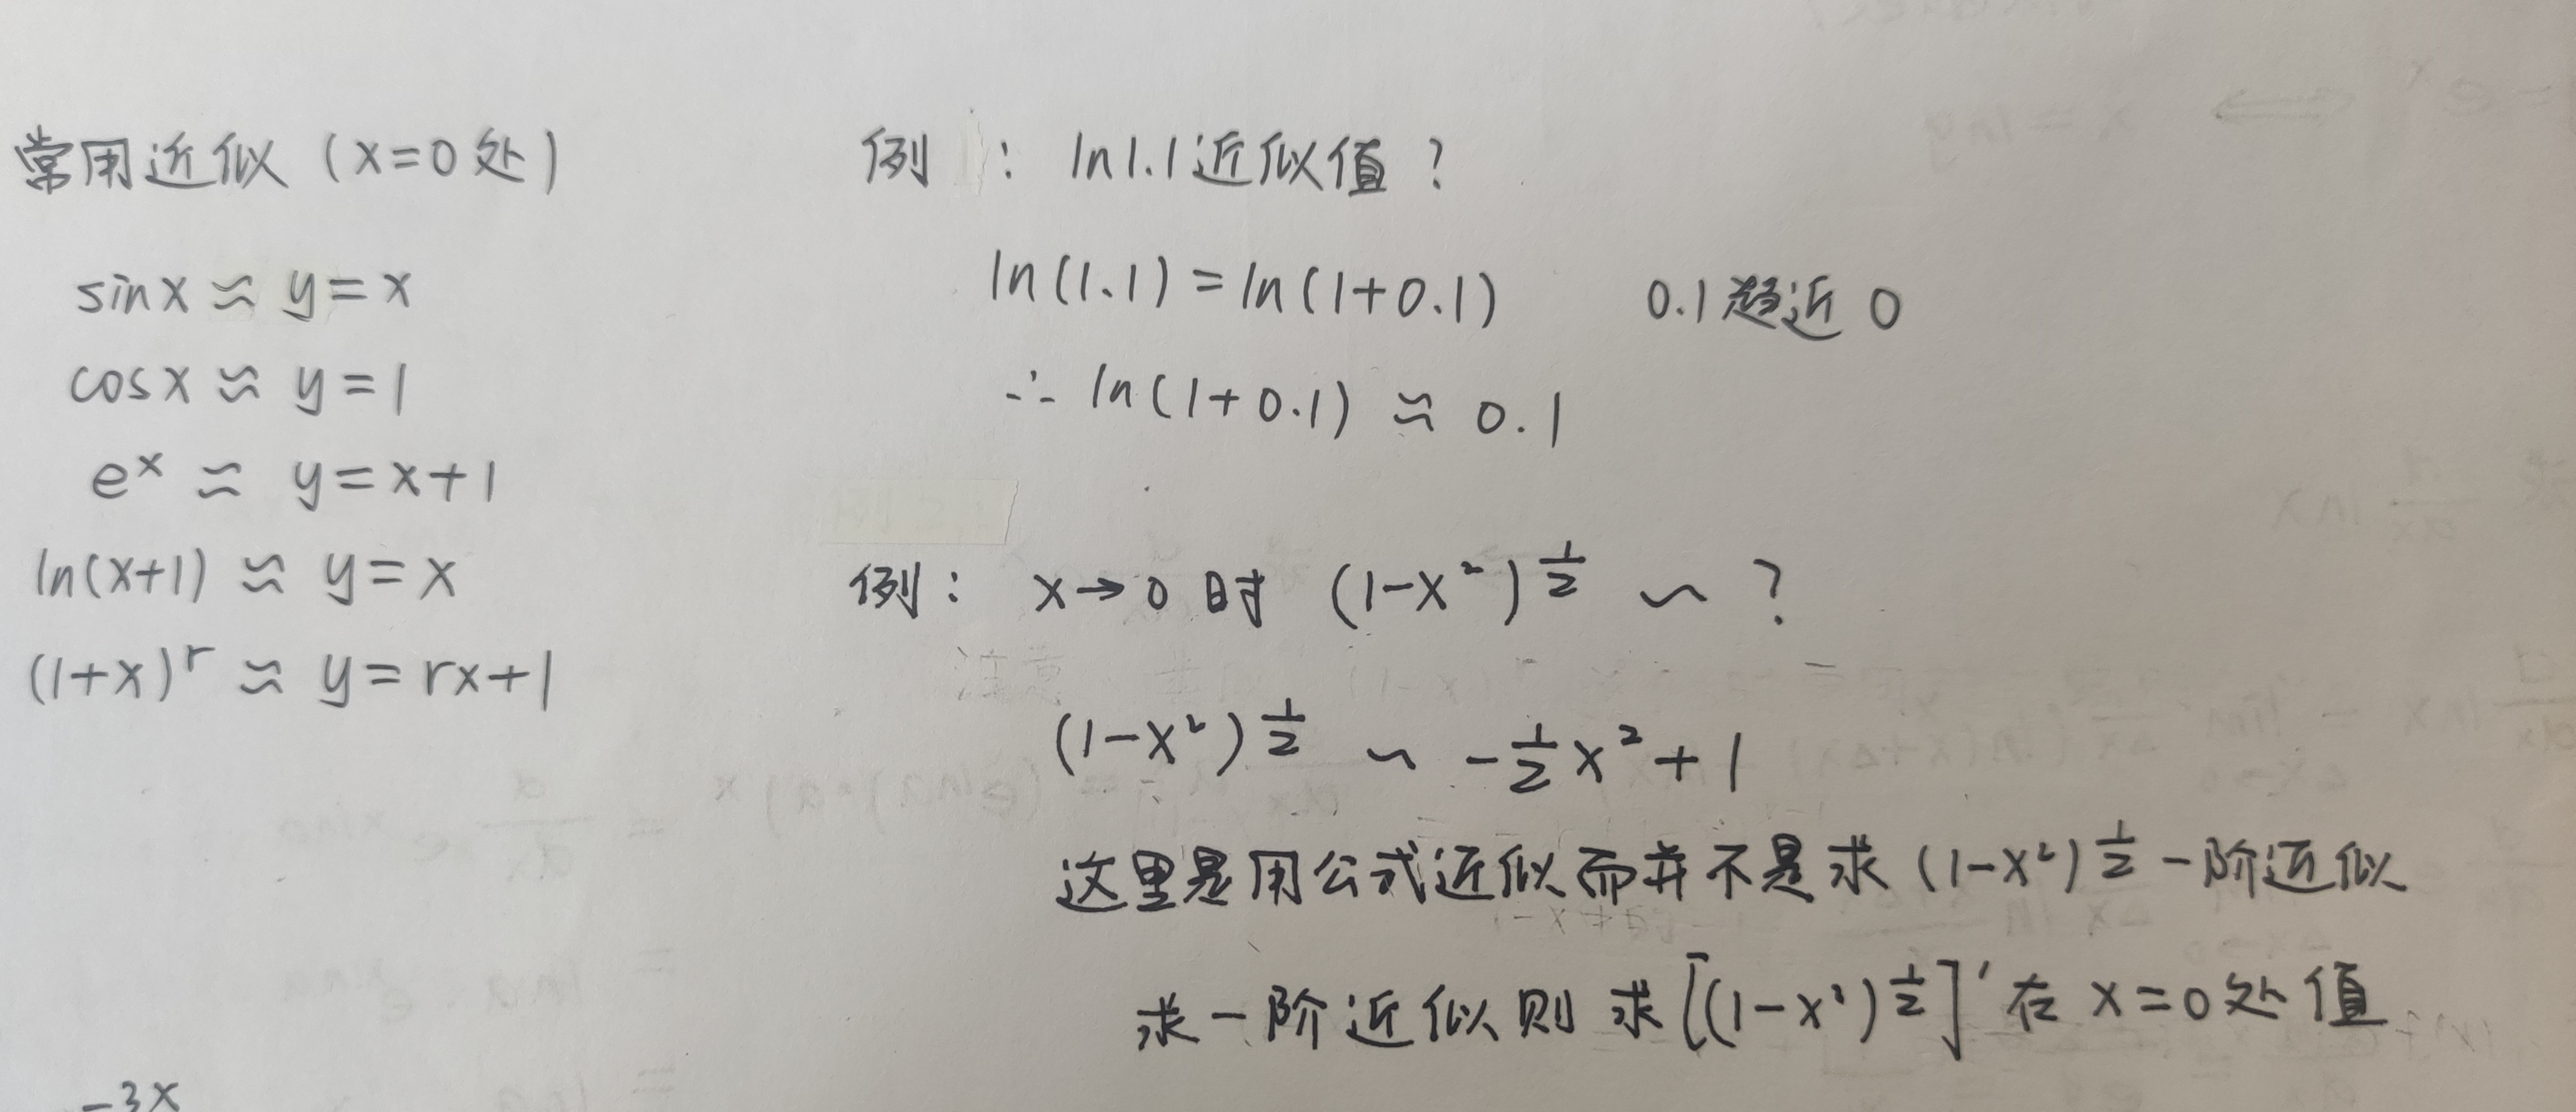 常用近似 (x=0处)
sinx ≈ y=x
cosx ≈ y=1
eˣ ≈ y=x+1
ln(x+1) ≈ y=x
(1+x)ʳ ≈ y=rx+1
-3x
例 : ln1.1近似值 ?
ln(1.1)=ln(1+0.1) 0.1趋近 0
∴ ln(1+0.1) ≈ 0.1
例: x→0 时 (1-x²)^½ ~ ?
(1-x²)^½ ~ -½x²+1
这里是用公式近似而并不是求 (1-x²)^½ 一阶近似
求一阶近似则 求[(1-x²)^½]′在 x=0处值